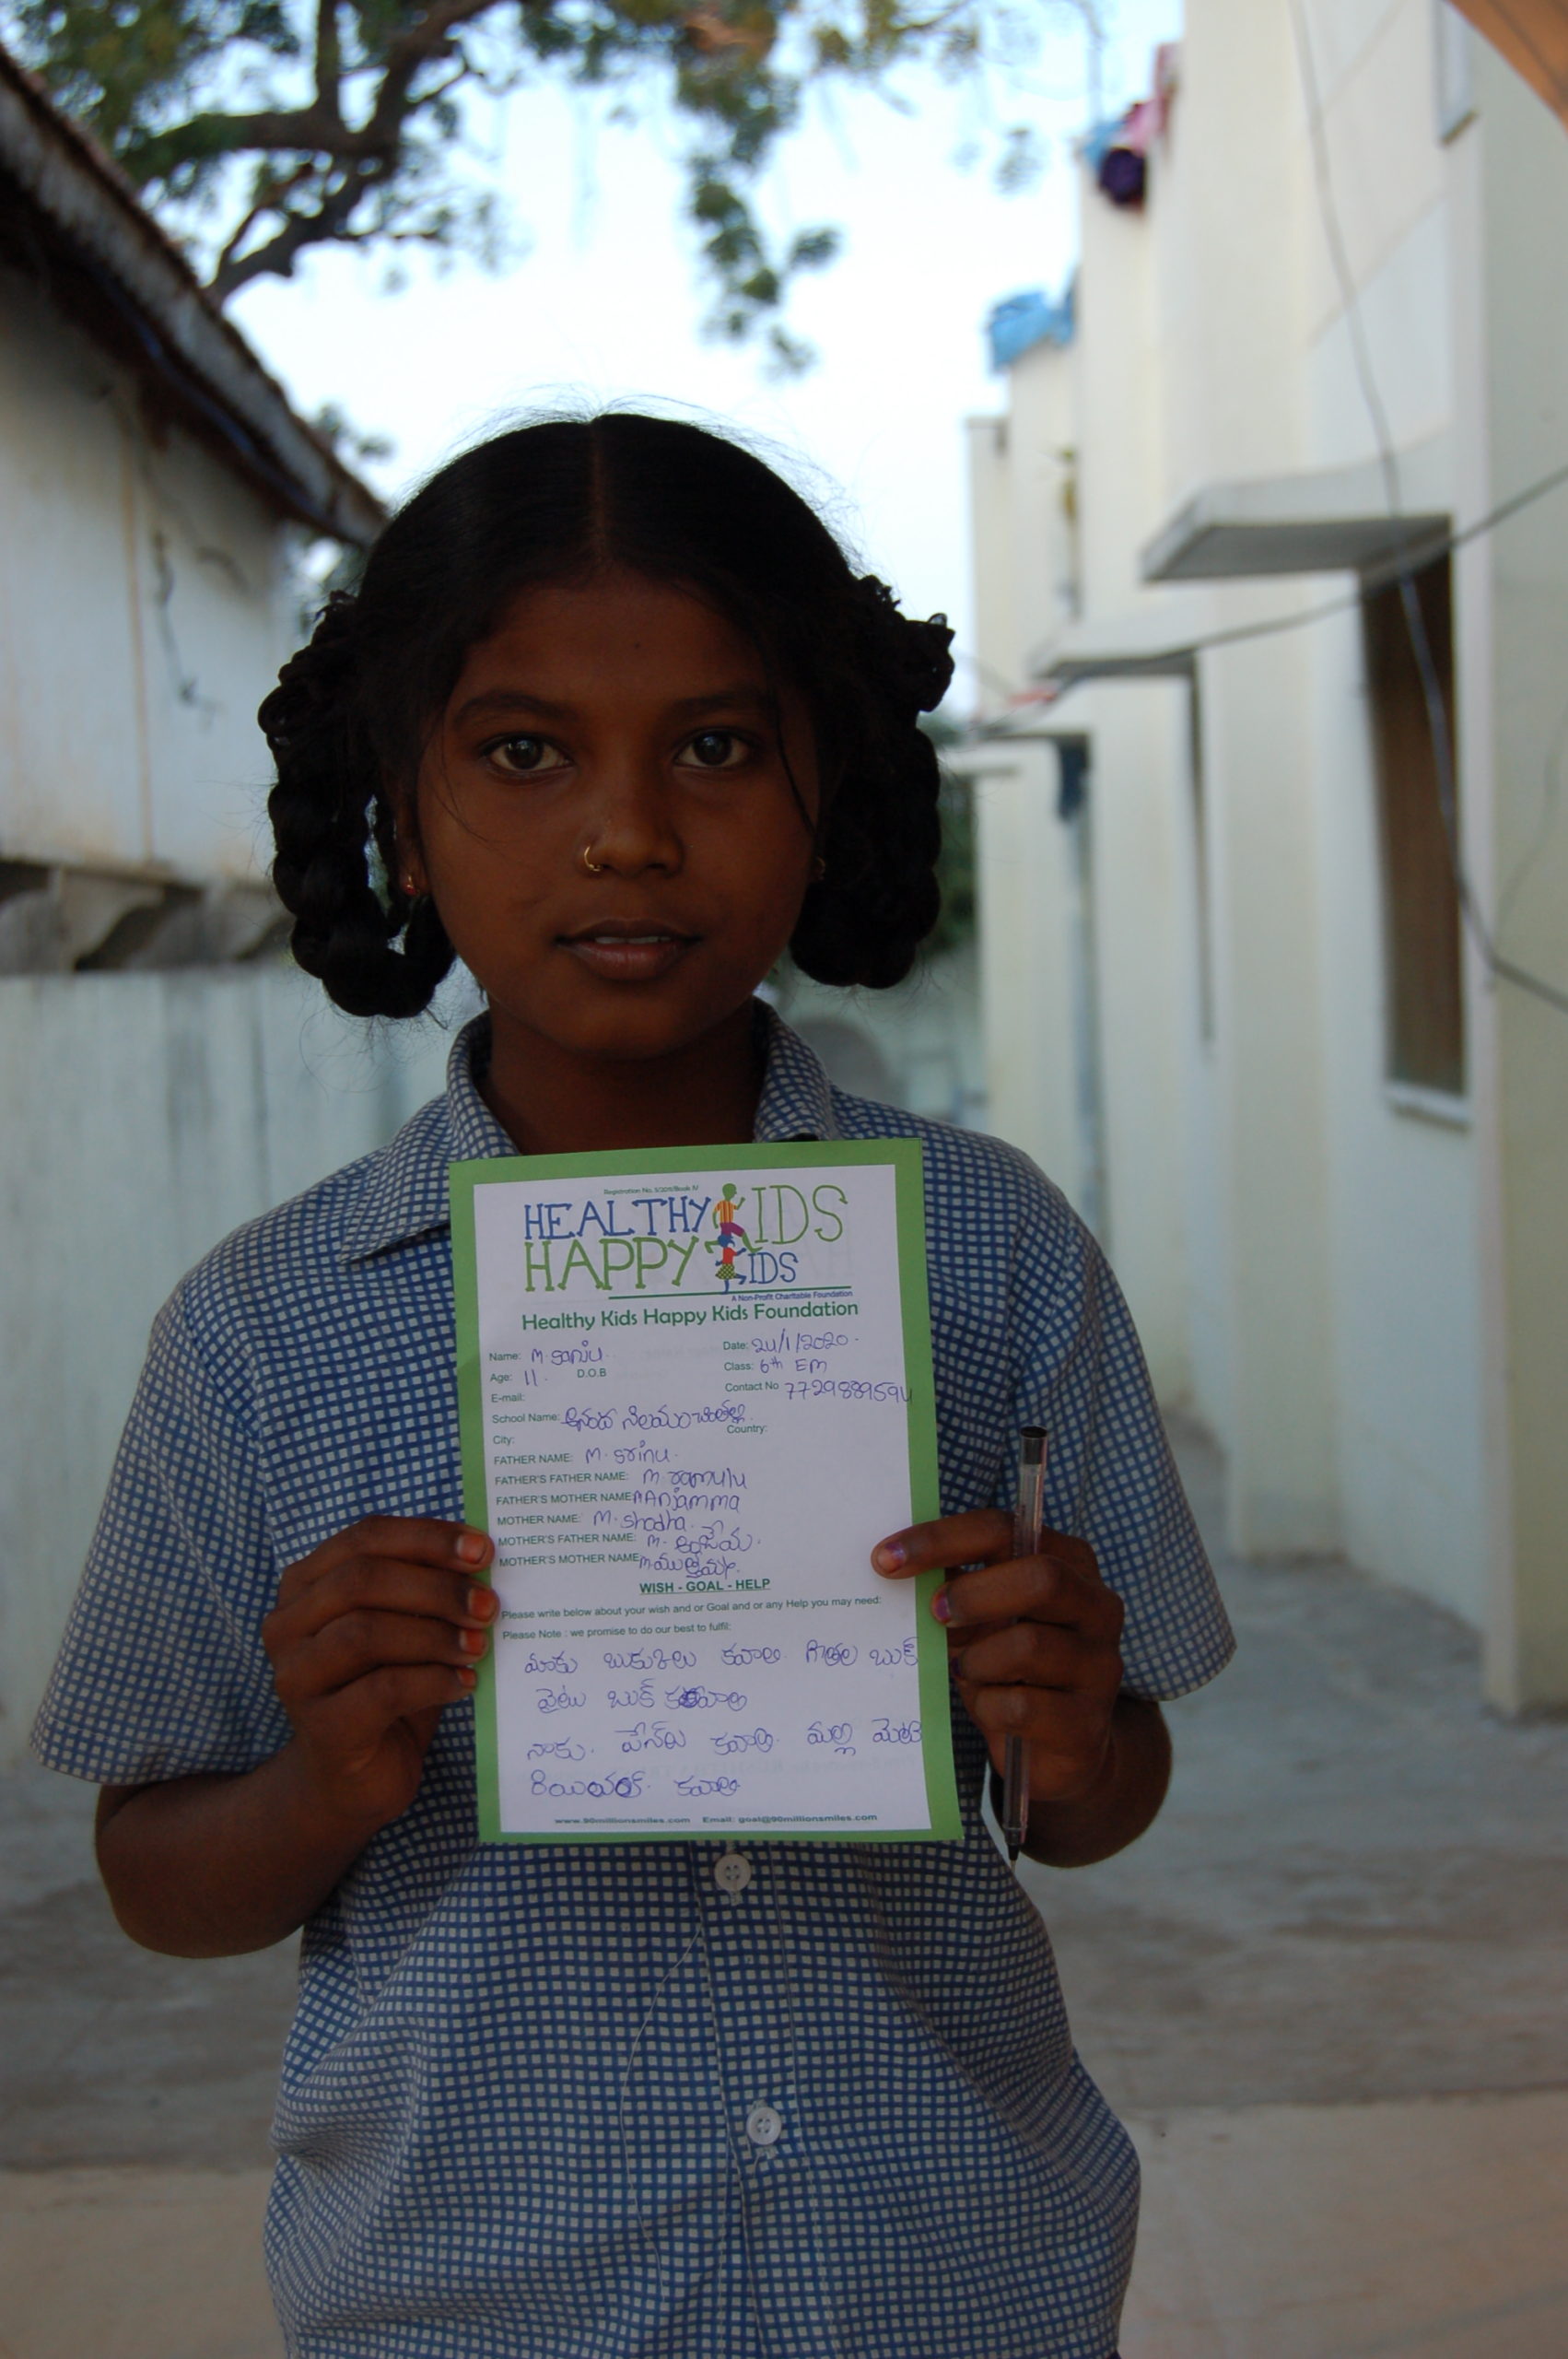 HEALTHY KIDS
HAPPY KIDS
A Non-Profit Charitable Foundation
Healthy Kids Happy Kids Foundation
Name: M. Sanju. Date: 24/1/2020.
Age: 11. D.O.B Class: 6th EM
E-mail: Contact No 7729889594
School Name: ఆనంద నిలయం
City: Country:
FATHER NAME: M. Srinu.
FATHER'S FATHER NAME: M. ramulu
FATHER'S MOTHER NAME: M Anjamma
MOTHER NAME: M. Shodha.
MOTHER'S FATHER NAME: M.
MOTHER'S MOTHER NAME: M
WISH - GOAL - HELP
Please write below about your wish and or Goal and or any Help you may need:
Please Note : we promise to do our best to fulfil:
మాకు బుకుకలు కవాలి గితల బుక్
వైటు బుక్ కవాలి
నాకు. పేన్లు కవాలి. మల్లి
కవాలి
www.90millionsmiles.com Email: goal@90millionsmiles.com